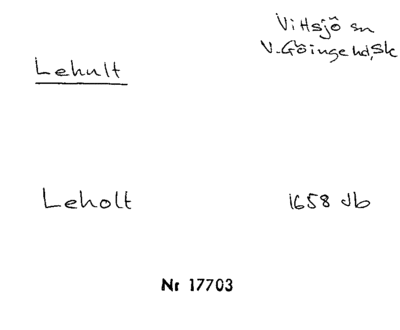 Vittsjö sn
V. Göinge hd, Sk
Lehult
Leholt
1658 Jb
Nr 17703